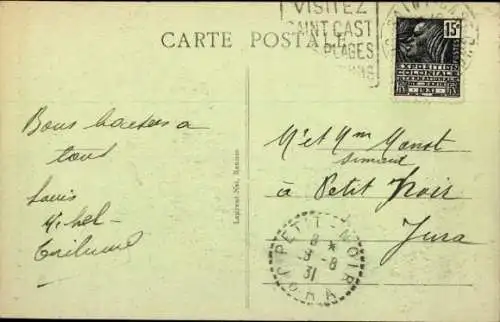 VISITEZ
SAINT CAST
PLAGES
CARTE POSTALE
15c
POSTES
EXPOSITION
COLONIALE
INTERNATIONALE
1931
Bons baisers a
tous
Louis
Michel
Mr et Mme Manot
à Petit Noir
Jura
Laurent-Nel, Rennes
PETIT-NOIR
8 *
3-8
31
JURA